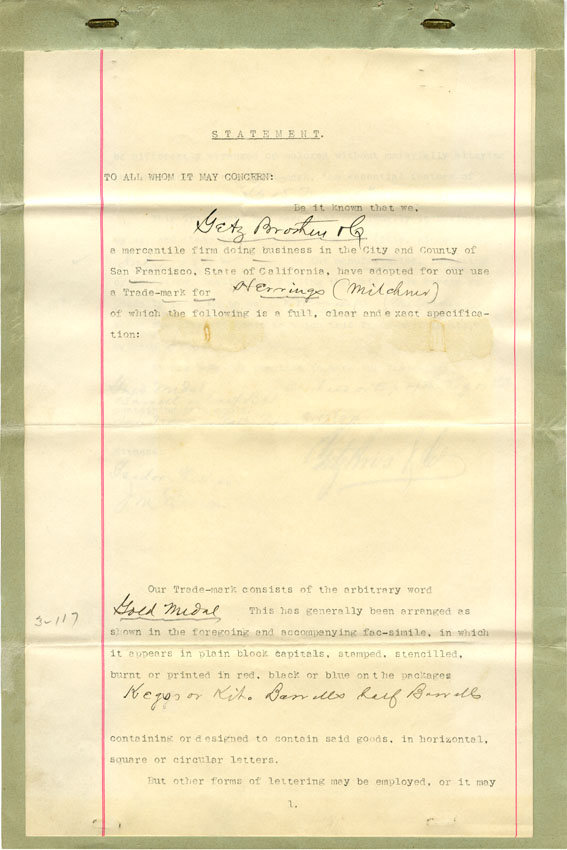 STATEMENT.
TO ALL WHOM IT MAY CONCERN:
Be it known that we,
Getz Brothers & Co
a mercantile firm doing business in the City and County of
San Francisco, State of California, have adopted for our use
a Trade-mark for Herrings (Milchner)
of which the following is a full, clear and exact specifica-
tion:
Our Trade-mark consists of the arbitrary word
Gold Medal This has generally been arranged as
3-117
shown in the foregoing and accompanying fac-simile, in which
it appears in plain block capitals, stamped, stencilled,
burnt or printed in red, black or blue on the packages
Kegs or Kits Barrells half Barrells
containing or designed to contain said goods, in horizontal,
square or circular letters.
But other forms of lettering may be employed, or it may
1.